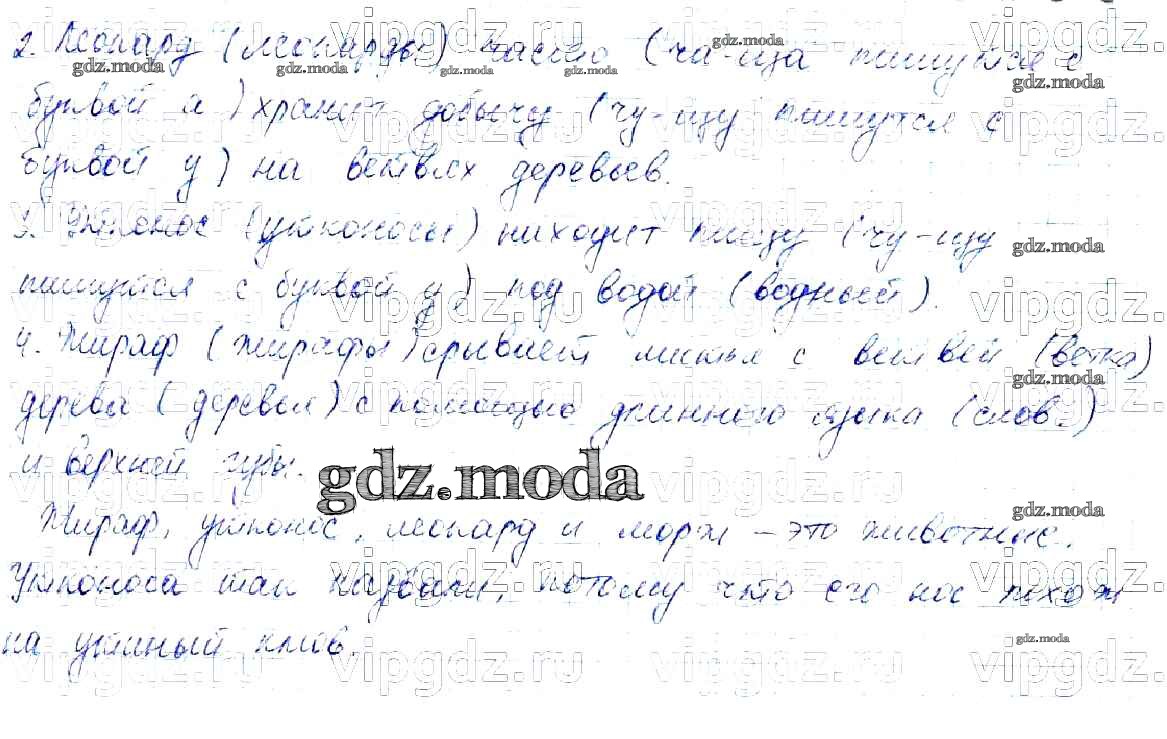 2. Леопард (леопарды) часто (ча-ща пишутся с
буквой а) хранит добычу (чу-щу пишутся с
буквой у) на ветвях деревьев.
3. Утконос (утконосы) находит пищу (чу-щу
пишутся с буквой у) под водой (водный).
4. Жираф (жирафы) срывает листья с ветвей (ветка)
дерева (деревья) с помощью длинного языка (слов.)
и верхней губы.
gdz.moda
Жираф, утконос, леопард и морж – это животные.
Утконоса так назвали, потому что его нос похож
на утиный клюв.